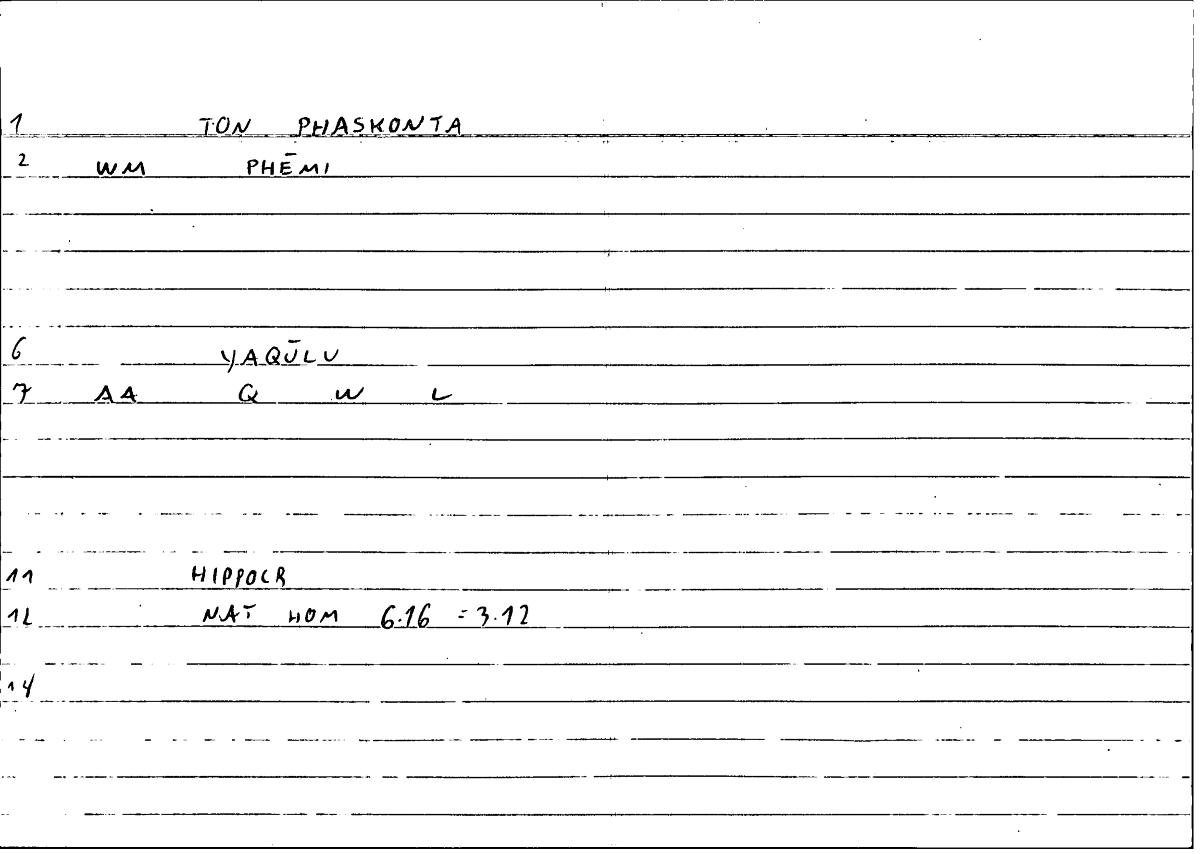 1 TON PHASKONTA
2 WM PHĒMI
6 YAQŪLU
7 AA Q W L
11 HIPPOCR
12 NAT HOM 6.16 = 3.12
14